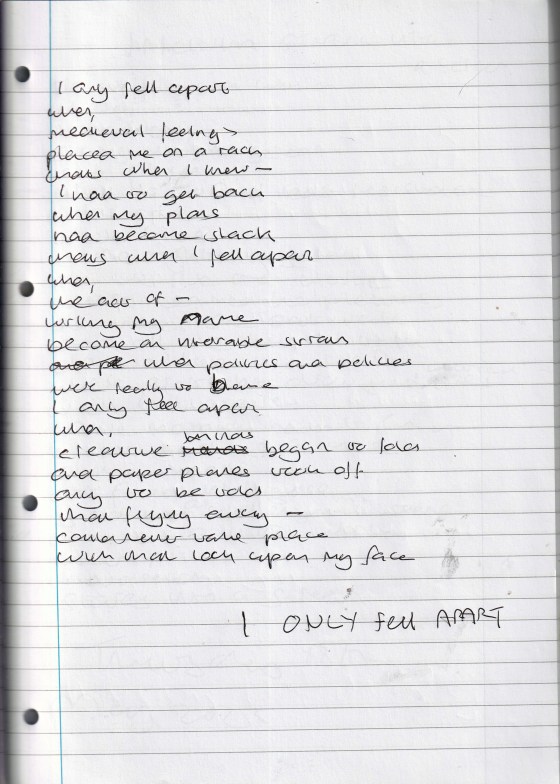 I only fell apart
when,
medieval feelings
placed me on a rack
thats when I knew –
I had to get back
when my plans
had become slack
thats when I fell apart
when,
the act of –
writing my name
become an
when politics and policies
were ready to blame
I only fell apart
when,
creative minds began to fold
and paper planes took off
only to be told
that flying away –
could never take place
with that look upon my face
I ONLY fell APART